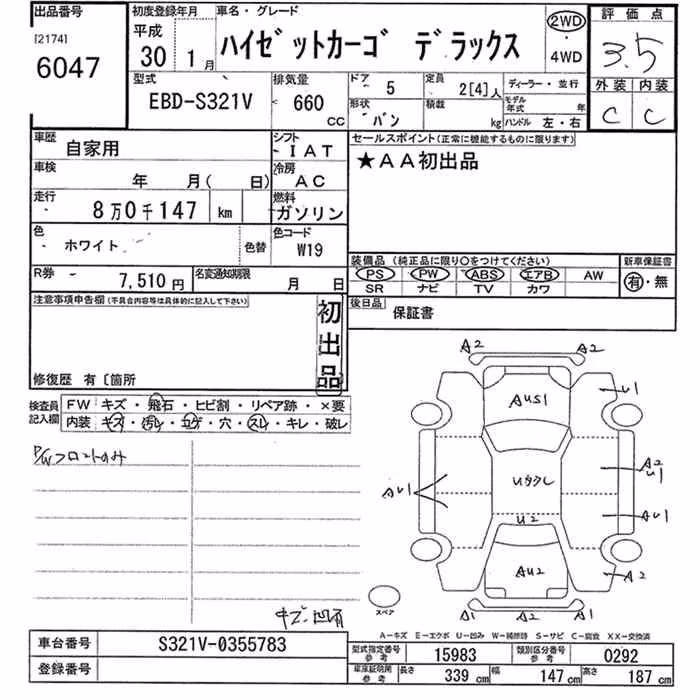 出品番号
[2174]
6047
初度登録年月
平成
30 1月
車名・グレード
ハイゼットカーゴ デラックス
2WD
・
4WD
評価点
3.5
外装 内装
C C
型式
EBD-S321V
排気量
660 CC
ドア
5
定員
2[4]人
ディーラー・並行
形状
バン
積載
kg
モデル年式 年
ハンドル 左・右
車歴
自家用
シフト
-IAT
セールスポイント(正常に機能するものに限ります)
★AA初出品
車検
年 月( 日)
冷房
AC
走行
8万0千147 km
燃料
ガソリン
色
ホワイト
色替
色コード
W19
装備品(純正品に限り○をつけてください)
新車保証書
PS PW ABS エアB AW
SR ナビ TV カワ
有・無
R券
7,510円
名変通知期限
月 日
後日品
保証書
注意事項申告欄(不具合内容等は具体的に記入して下さい)
初出品
修復歴 有〔箇所
検査員記入欄
FW キズ・飛石・ヒビ割・リペア跡・×要
内装 キズ・汚レ・コゲ・穴・スレ・キレ・破レ
P/Wフロントのみ
キズ・凹有
A2 A2
AUS1
U1
A2
U1
AU1
AU1
Uタクレ
U2
AU2
A2
A1 A2 A1
スペア
A-キズ E-エクボ U-凹み W-補修跡 S-サビ C-腐食 XX-交換済
車台番号
S321V-0355783
登録番号
型式指定番号
参考
15983
類別区分番号
参考
0292
車庫証明用
参考
長さ 339 cm 幅 147 cm 高さ 187 cm